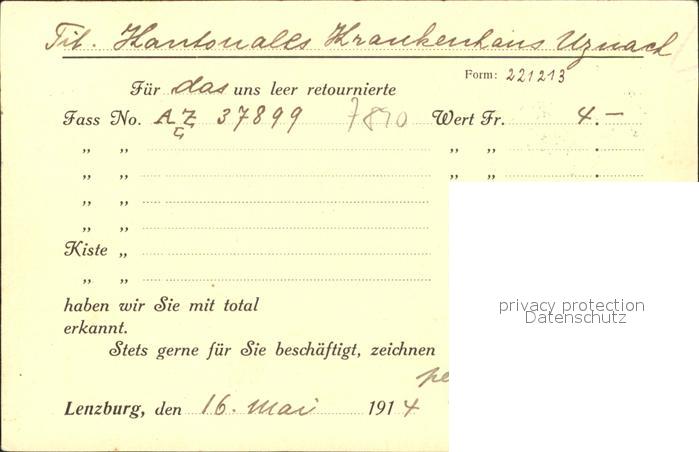 Tit. Kantonales Krankenhaus Uznach
Form: 221213
Für das uns leer retournierte
Fass No. A Z 37899 7890 Wert Fr. 4.–
G
„ „ „ „ .
„ „ „ „ .
„ „
„ „
Kiste „
„ „
haben wir Sie mit total
erkannt.
Stets gerne für Sie beschäftigt, zeichnen
Lenzburg, den 16. Mai 1914
privacy protection
Datenschutz